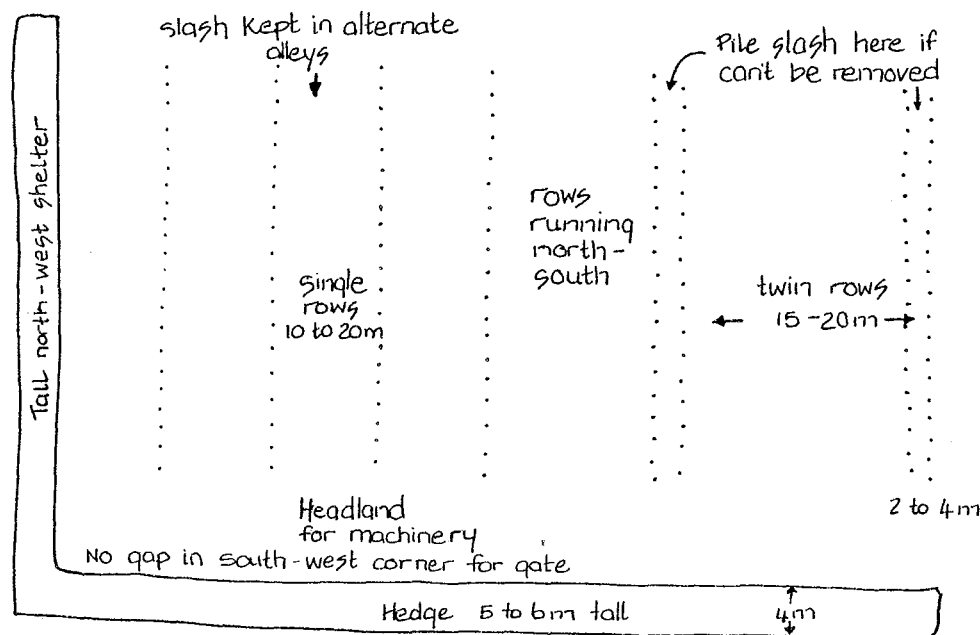 slash kept in alternate
alleys
Pile slash here if
can't be removed
Tall north-west shelter
rows
running
north-
south
single
rows
10 to 20m
twin rows
15-20m
2 to 4m
Headland
for machinery
No gap in south-west corner for gate
Hedge 5 to 6m tall
4m